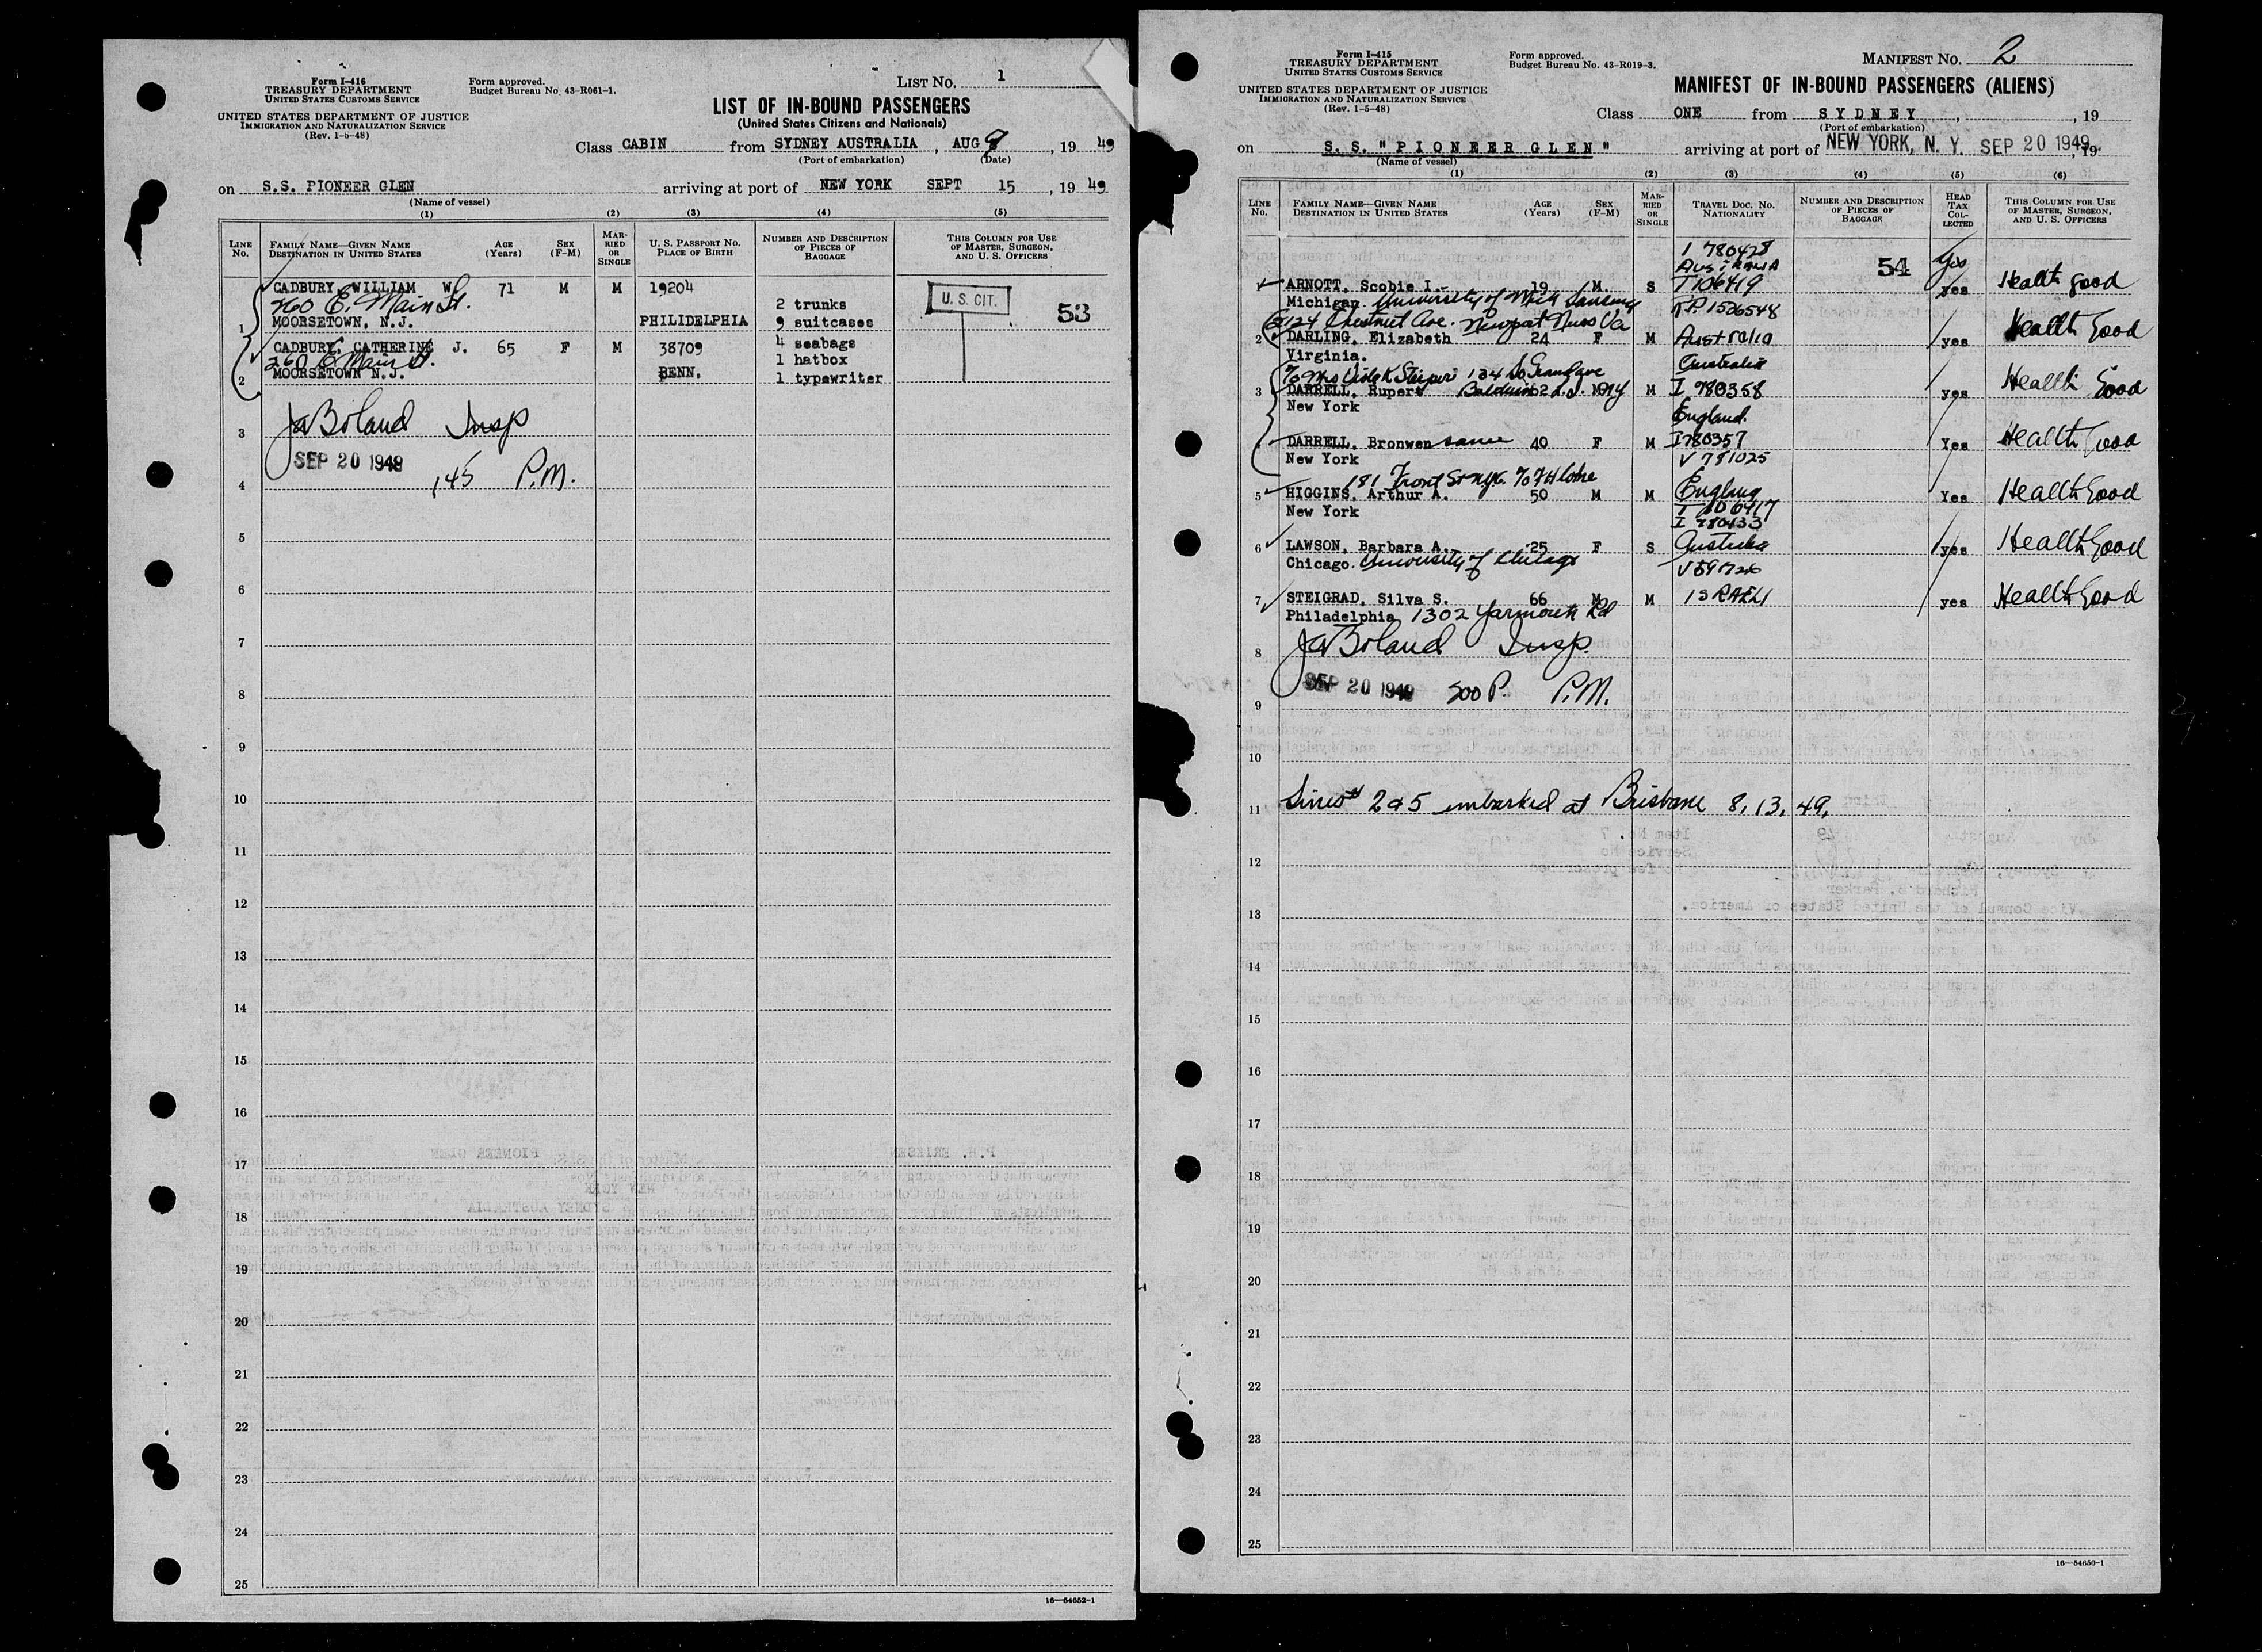 Form I-416
TREASURY DEPARTMENT
UNITED STATES CUSTOMS SERVICE
UNITED STATES DEPARTMENT OF JUSTICE
IMMIGRATION AND NATURALIZATION SERVICE
(Rev. 1-5-48)
Form approved.
Budget Bureau No. 43-R061-1.
LIST No. 1
LIST OF IN-BOUND PASSENGERS
(United States Citizens and Nationals)
Class CABIN from SYDNEY AUSTRALIA, AUG 9, 19 49
(Port of embarkation) (Date)
on S.S. PIONEER GLEN arriving at port of NEW YORK SEPT 15, 19 49
(Name of vessel)
(1) (2) (3) (4) (5)
LINE No. FAMILY NAME—GIVEN NAME DESTINATION IN UNITED STATES AGE (Years) SEX (F-M) MARRIED OR SINGLE U. S. PASSPORT No. PLACE OF BIRTH NUMBER AND DESCRIPTION OF PIECES OF BAGGAGE THIS COLUMN FOR USE OF MASTER, SURGEON, AND U. S. OFFICERS
CADBURY, WILLIAM W. 71 M M 19204 U. S. CIT. 53
260 E. Main St. 2 trunks
1 MOORSETOWN, N.J. PHILIDELPHIA 9 suitcases
CADBURY, CATHERINE J. 65 F M 38709 4 seabags
260 E. Main St. 1 hatbox
2 MOORSETOWN N.J. PENN. 1 typewriter
JaBoland Insp
3
SEP 20 1949
145 P.M.
4
5
6
7
8
9
10
11
12
13
14
15
16
17
18
19
20
21
22
23
24
25
16—54652-1
Form I-415
TREASURY DEPARTMENT
UNITED STATES CUSTOMS SERVICE
UNITED STATES DEPARTMENT OF JUSTICE
IMMIGRATION AND NATURALIZATION SERVICE
(Rev. 1-5-48)
Form approved.
Budget Bureau No. 43-R019-3.
MANIFEST No. 2
MANIFEST OF IN-BOUND PASSENGERS (ALIENS)
Class ONE from SYDNEY, , 19
(Port of embarkation)
on S.S. "PIONEER GLEN" arriving at port of NEW YORK, N. Y. SEP 20 1949, 19
(Name of vessel)
(1) (2) (3) (4) (5) (6)
LINE No. FAMILY NAME—GIVEN NAME DESTINATION IN UNITED STATES AGE (Years) SEX (F-M) MARRIED OR SINGLE TRAVEL DOC. No. NATIONALITY NUMBER AND DESCRIPTION OF PIECES OF BAGGAGE HEAD TAX COLLECTED THIS COLUMN FOR USE OF MASTER, SURGEON, AND U. S. OFFICERS
I 780428
Australia 54 Yes
ARNOTT, Scobie I. 19 M. S T106419 yes Health good
Michigan. University of Mich Lansing T.P. 1526548
124 Chestnut Ave. Newport News Va
2 DARLING, Elizabeth 24 F M Australia yes Health Good
Virginia.
c/o Mrs 134 So Grand ave Australia
3 DARRELL, Rupert Baldwin L.I. N.Y M I 780358 yes Health Good
New York England.
DARRELL, Bronwen same 40 F M I780357 Yes Health Good
New York V 781025
181 Front St NYC.
5 HIGGINS, Arthur A. 50 M M England Yes Health Good
New York T 106417
I 780433
6 LAWSON, Barbara A. 25 F S Australia yes Health Good
Chicago. University of Chicago
7 STEIGRAD, Silva S. 66 M M ISRAELI yes Health Good
Philadelphia 1302 Yarmouth Rd
JaBoland Insp.
8
SEP 20 1949 200 P. P.M.
9
10
11 Lines 2 & 5 embarked at Brisbane 8, 13, 49.
12
13
14
15
16
17
18
19
20
21
22
23
24
25
16—54650-1